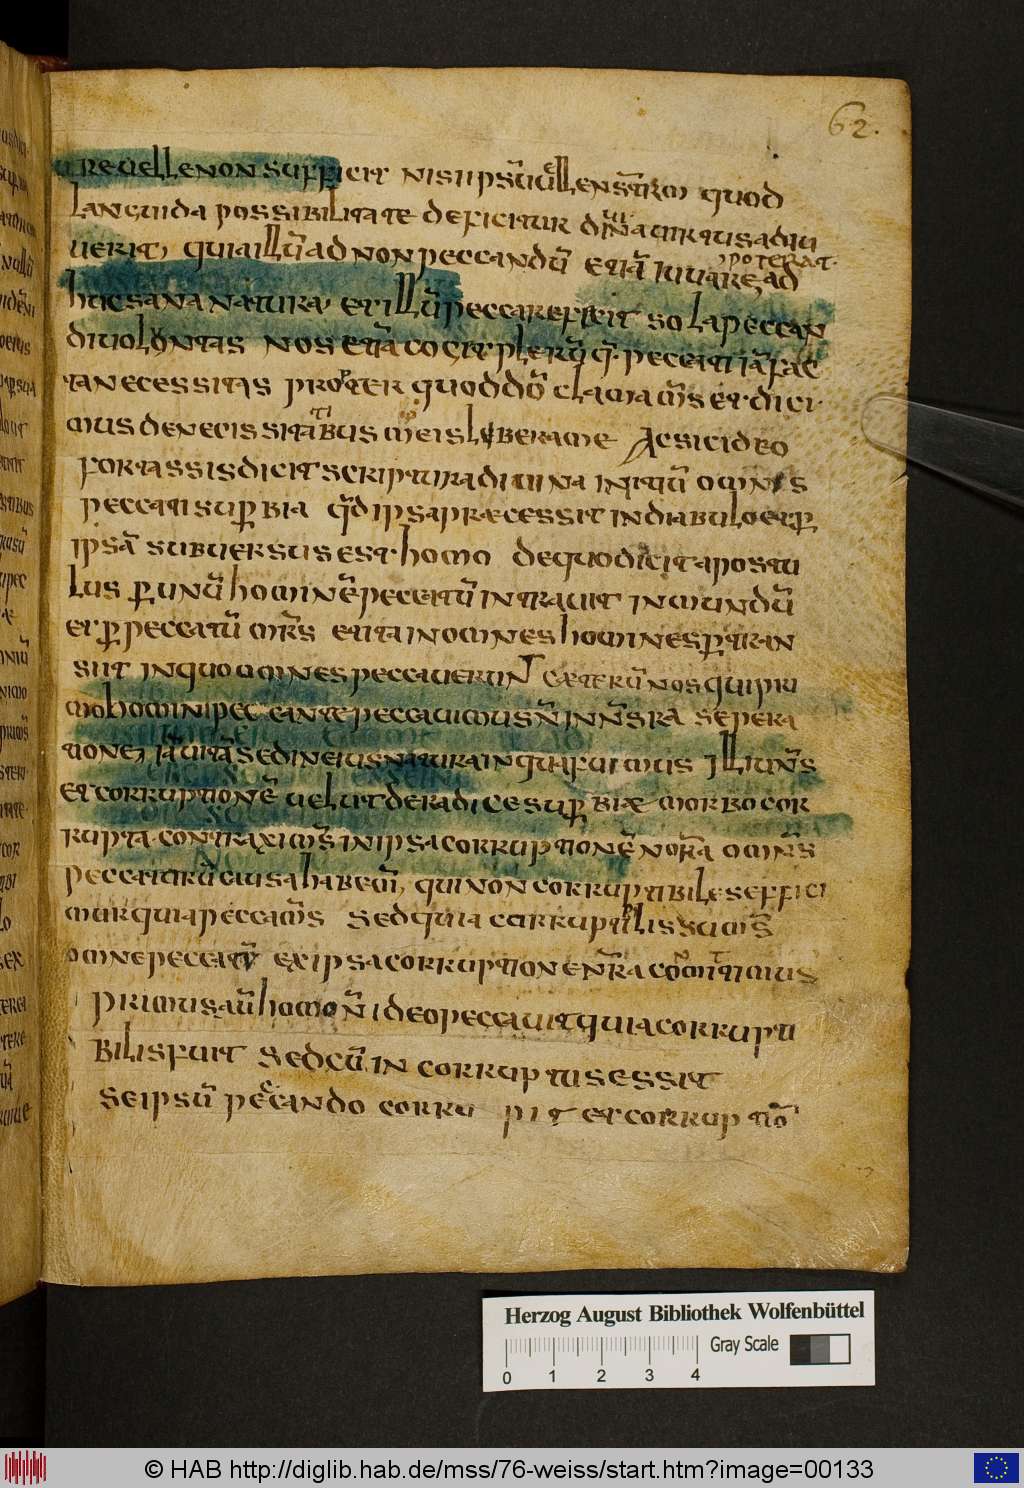 62.
reuelle non sufficit nisi ipsū uellenstrm quod
languida possibilitate deficitur diuina uirtus adiu
poterat.
uerit, quia illū ad non peccandū etiā iuuare, ad
huc sana natura. et illū peccare fecit sola peccan
di uolontas nos etiā cogit plerūq; peccati iā fac
ta necessitas propter quod dō clamams et dici
mus de necissitatibus meis libera me Ac sic ideo
fortassis dicit scriptura diuina initiū omnis
peccati superbia qd ipsa præcessit in diabulo et per
ipsā subuersus est homo de quo dicit apostu
lus per unū hominē peccatū intrauit in mundū
et per peccatū mrs et ita in omnes homines pertran
siit in quo omnes peccauerunt Cæterū nos qui pri
mo homini peccante peccauimus n in nsra sepera
tione, iā uitā sed in eius natura in qua fuimus Illiuns
et corruptionē uelut de radice superbiæ morbo cor
rupta contraxims in ipsa corruptionē norā omns
peccaturū ciusa habem, qui non corruptibiles effici
mur quia peccams sed quia corruptilis sums
omne peccatū ex ipsa corruptione nra comittimus
primus aū homo n ideo peccauit quia corrupti
bilis fuit sed cū in corruptus essit
seipsū peccando corru pit et corruptiō
Herzog August Bibliothek Wolfenbüttel
Gray Scale
0 1 2 3 4
© HAB http://diglib.hab.de/mss/76-weiss/start.htm?image=00133